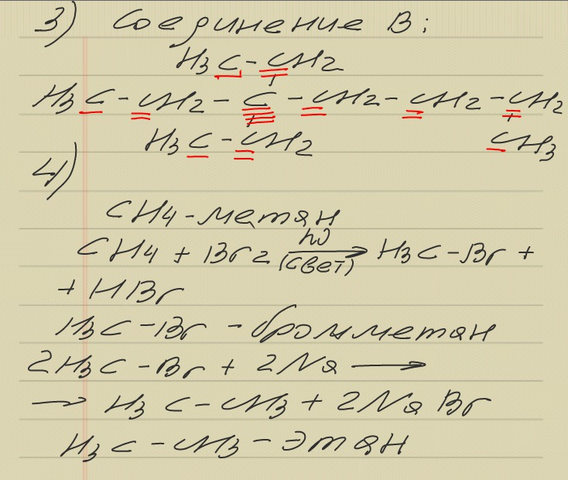 3) Соединение В:
H3C-CH2
H3C-CH2-C-CH2-CH2-CH2
H3C-CH2 CH3
4)
CH4-метан
CH4 + Br2 hν (свет) → H3C-Br +
+ HBr
H3C-Br - бромметан
2H3C-Br + 2Na →
→ H3C-CH3 + 2NaBr
H3C-CH3-этан